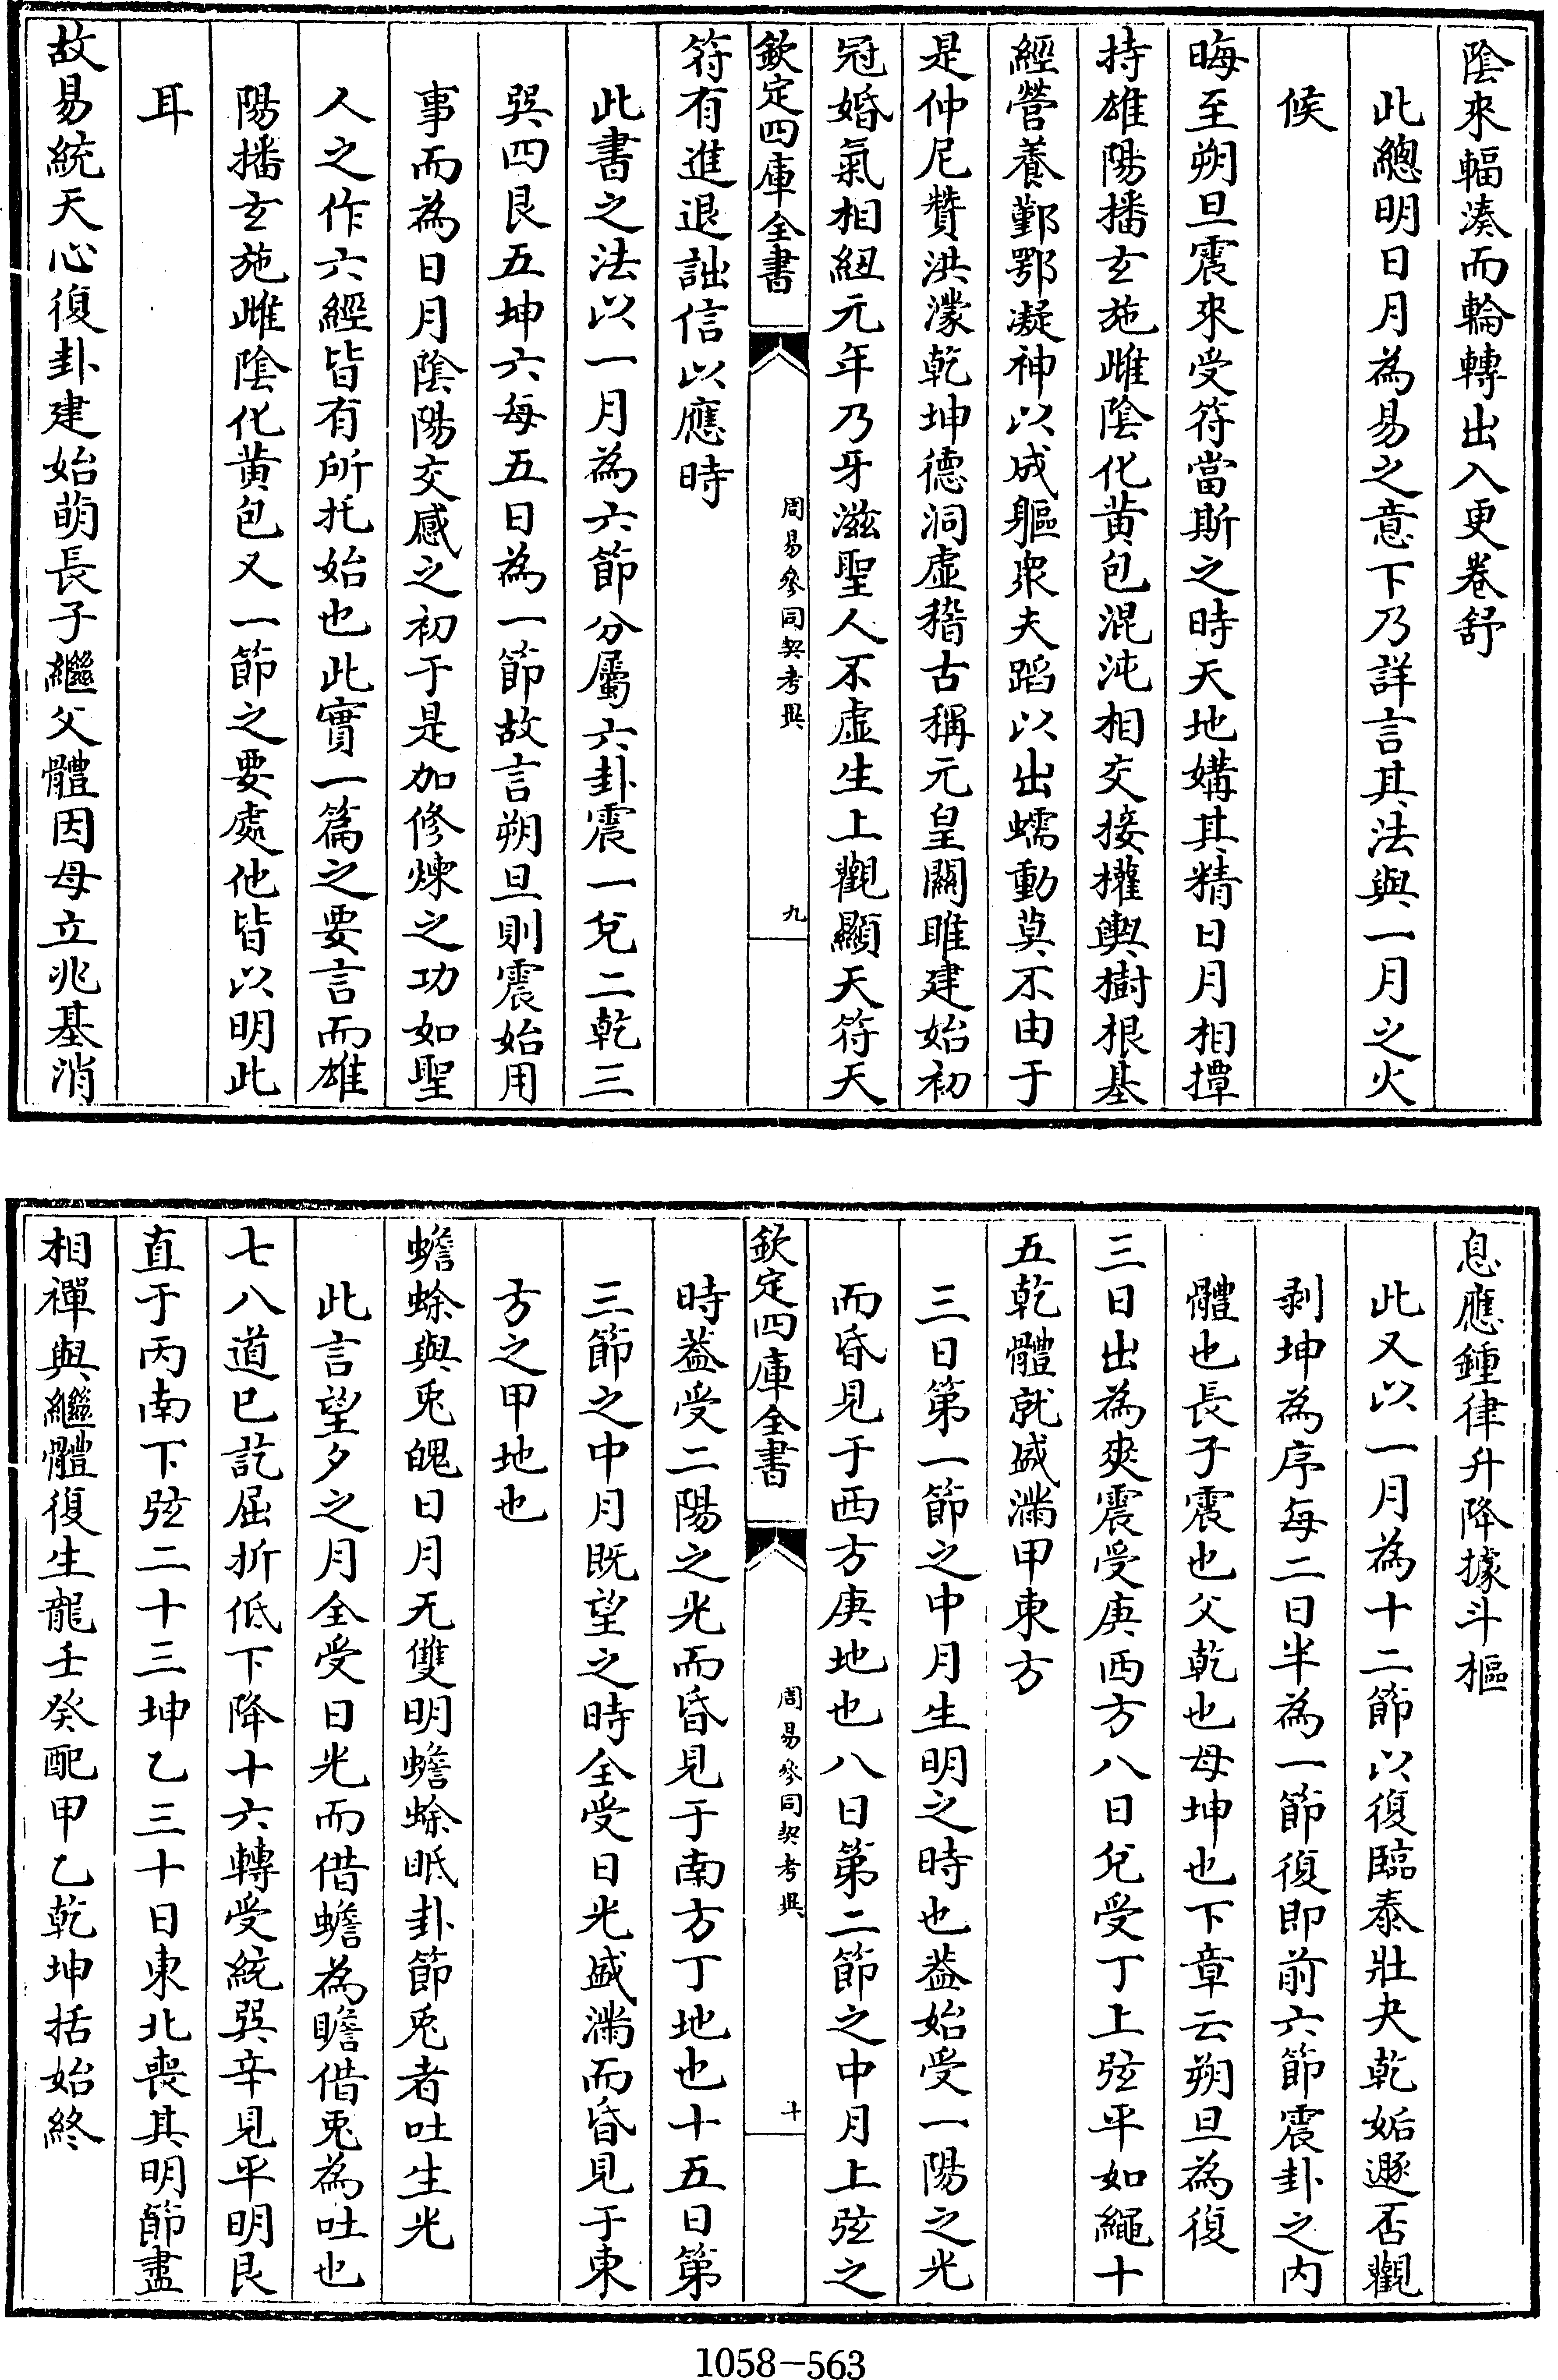 陰來輻湊而輪轉出入更卷舒
此總明日月為易之意下乃詳言其法與一月之火
候
晦至朔旦震來受符當斯之時天地媾其精日月相撢
持雄陽播玄施雌陰化黄包混沌相交接權輿樹根基
經營養鄞鄂凝神以成軀衆夫蹈以出蠕動莫不由于
是仲尼贊洪濛乾坤德洞虛稽古稱元皇關雎建始初
冠婚氣相紐元年乃牙滋聖人不虛生上觀顯天符天
欽定四庫全書
周易參同契考異
九
符有進退詘信以應時
此書之法以一月為六節分屬六卦震一兌二乾三
巽四艮五坤六每五日為一節故言朔旦則震始用
事而為日月陰陽交感之初于是加修煉之功如聖
人之作六經皆有所托始也此實一篇之要言而雄
陽播玄施雌陰化黄包又一節之要處他皆以明此
耳
故易統天心復卦建始萌長子繼父體因母立兆基消
息應鍾律升降據斗樞
此又以一月為十二節以復臨泰壯夬乾姤遯否觀
剥坤為序每二日半為一節復即前六節震卦之内
體也長子震也父乾也母坤也下章云朔旦為復
三日出為爽震受庚西方八日兌受丁上弦平如繩十
五乾體就盛滿甲東方
三日第一節之中月生明之時也葢始受一陽之光
而昏見于西方庚地也八日第二節之中月上弦之
欽定四庫全書
周易參同契考異
十
時葢受二陽之光而昏見于南方丁地也十五日第
三節之中月既望之時全受日光盛滿而昏見于東
方之甲地也
蟾蜍與兎魄日月无雙明蟾蜍眡卦節兎者吐生光
此言望夕之月全受日光而借蟾為瞻借兎為吐也
七八道已訖屈折低下降十六轉受統巽辛見平明艮
直于丙南下弦二十三坤乙三十日東北喪其明節盡
相禪與繼體復生龍壬癸配甲乙乾坤括始終
1058-563